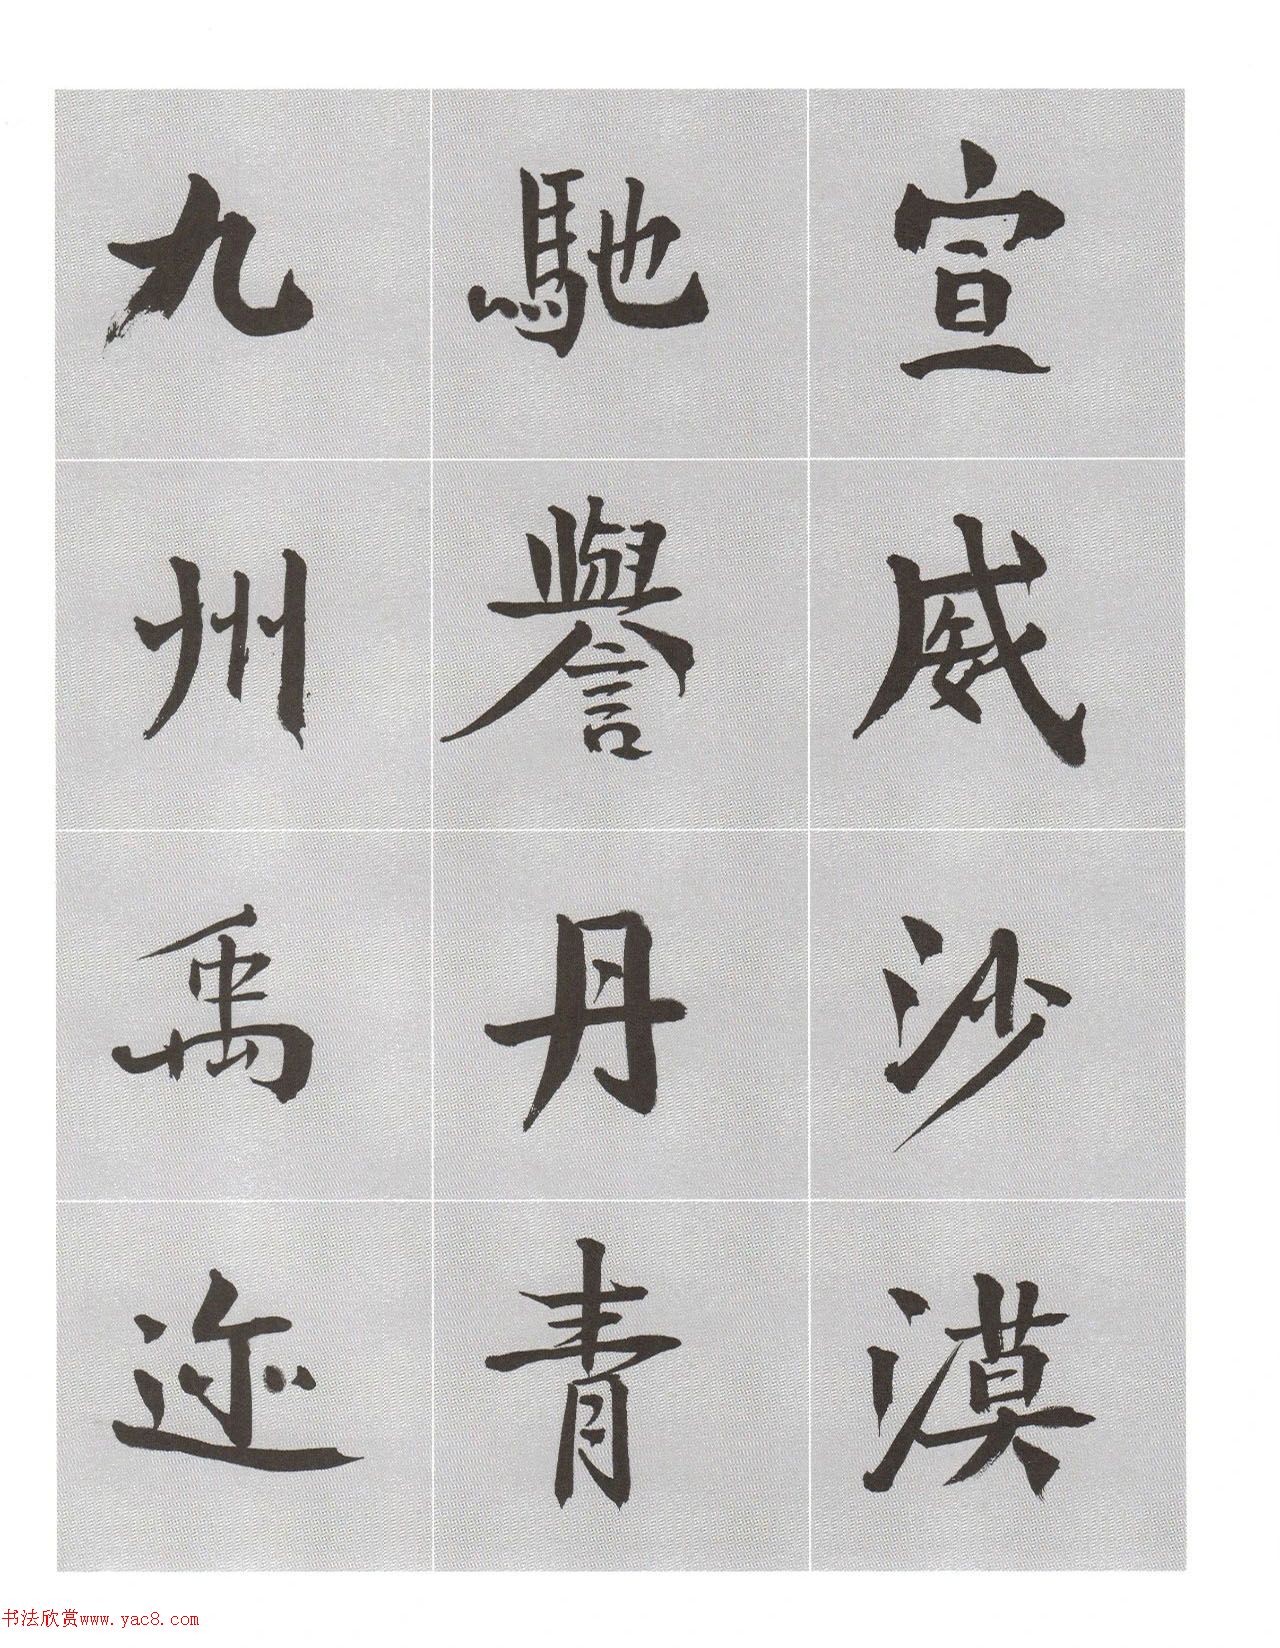 宣威沙漠
馳譽丹青
九州禹迹
书法欣赏www.yac8.com